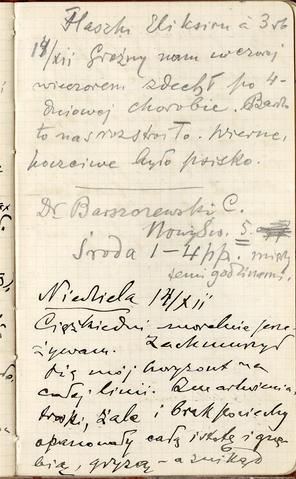 Flaszki Eliksiru à 3 rb
14/xii Groźny nam wczoraj
wieczorem zdechł po 4-
dniowej chorobie. Bardz
to nas rozstroiło. Wierne,
poczciwe było psisko.
Dr Barszczewski C.
Nowy Św. 5.
Środa 1-4 pp. między
temi godzinami.
Niedziela 14/xii
Ciężkie dni moralnie prze
żywam. Zachmurzył
się mój horyzont na
całej linii. Zmartwienia
troski, żale i brak pociechy
opanowały całą istotę i gnę
bią, gryzą - a znikąd